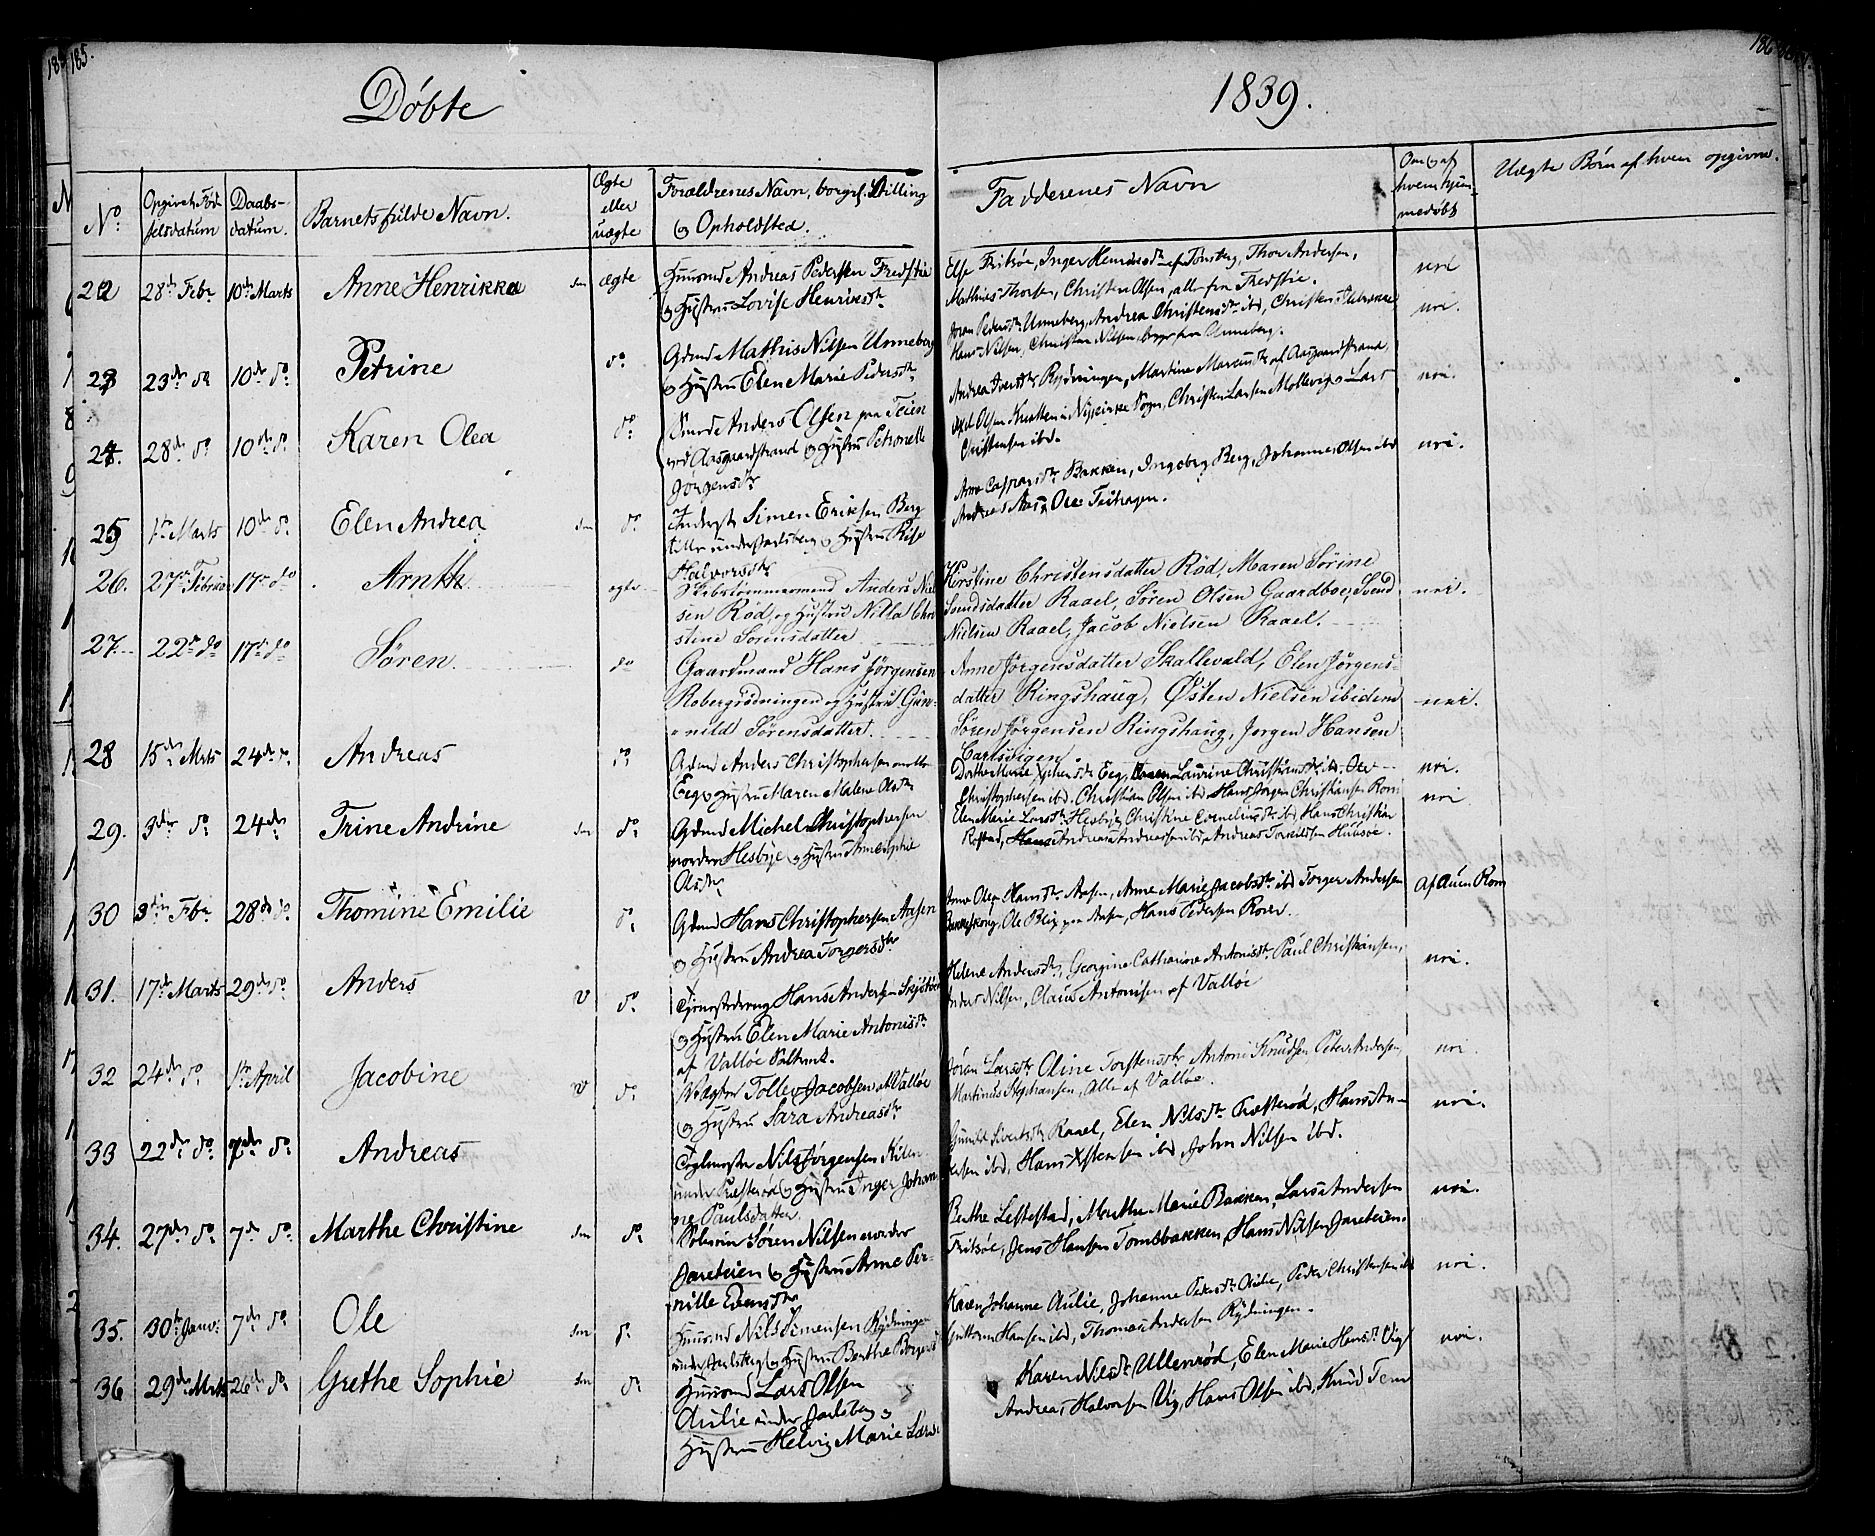 185.
186
Döbte
1839.
No.
Opgivet Föd-
selsdatum
Daabs-
datum.
Barnets fulde Navn.
Ægte
eller
uægte
Forældrenes Navn, borgrl. Stilling
og Opholdsted.
Faddernes Navn
Om og af
hvem hjem-
medöbt
Uægte Börn af hvem opgivne.
22 28de Febr 10de Marts Anne Henrikka dm ægte
Huusmd Andreas Pedersen Fredstie
og Hustru Lovise Henriksdtr
Else Fritsöe, Inger Henriksdtr af Tönsberg, Thor Andersen,
Mathies Thorsen, Christen Olsen, alle fra Fredstie.
nei
23 23de do 10de do Petrine do
Gdmd Mathis Nilsen Unneberg
og Hustru Elen Marie Pedersdtr
Joran Pedersdtr Unneberg, Andrea Christensdtr ibd, Christen
Hans Nilsen, Christen Nilsen, begge fra Unneberg.
nei.
24. 28de do 10de do Karen Olea do
Anders Olsen paa Teien
ved Aasgaardstrand og Hustru Petronelle
Jörgensdtr
Andrea Iversdtr Rydningen, Martine Marcusdtr af Aasgaardstrand,
Olsen Knatten i Sogn, Christen Larsen Mollevig, Lars
Christensen ibd.
nei.
25 1te Marts 10de do Elen Andrea dm do
Inderste Simen Eriksen Berg
under Jarlsberg og Hustru
Halvorsdtr
Anne Caspersdtr Bakken, Ingeborg Berg, Johannes Olsen ibd
Andreas Aas, Ole Teihagen.
nei.
26. 27de Februar 17de do Arnth ægte
Skibstömmermand Anders Niel-
sen Röd, og Hustru Nilla Chri-
stine Sörensdatter
Kerstine Christensdatter Röd, Maren Sörine
Svendsdatter Raael, Sören Olsen Gaardboe, Svend
Nielsen Raael, Jacob Nielsen Raael.
nei.
27. 22de do 17de do Sören. do
Gaardmand Hans Jörgensen
Robergrödningen og Hustru Gun-
nild Sörensdatter.
Anne Jörgensdatter Skallevald, Elen Jörgens-
datter Ringshaug, Östen Nielsen ibidem
Sören Jörgensen Ringshaug, Jorgen Hansen
Carlsvigen.
nei.
28 15de Mrts 24de do Andreas do
Gdmd Anders Christophersen
Eeg og Hustru Maren Malene Olsdtr
Dorthe Marie dtr Eeg, Laurine Christiansdtr ibd. Ole
Christophersen ibd. Christian Olsen ibd Hans Jörgen Christiansen Rom
nei.
29. 3de do 24de Trine Andrine dm do
Gdmd Michel Christophersen
nordre Hesbye og Hustru Annesophie
Olsdtr
Elen Marie Larsdtr Hesbye, Christine Corneliusdtr ibd Hans Christian
Andreas Andreassen ibd, Andreas Torkildsen Hulsöe.
nei
30 3die Febr 28de do Thomine Emilie do
Gdmd Hans Christophersen Aasen
og Hustru Andrea Torgersdtr
Anne Olea Hansdtr Aasen, Anne Marie Jacobsdtr ibd Torger Andersen
Ole Blix paa Aasen, Hans Pedersen Roren.
Af Auen Rom
31. 17de Marts 29de do Anders V do
Hans Andersen
og Hustru Elen Marie Antonisdtr
af Vallöe Saltverk.
Helene Andersdtr, Georgine Catharine Antonisdtr Paul Christiansen,
Anders Nilsen, Claus Antonisen af Vallöe
nei.
32 24de do 1te April Jacobine V do
Vægter Tollev Jacobsen af Vallöe
og Hustru Sara Andreasdtr
Joran Larsdtr Oline Torstensdtr Antoni Knudsen Peter Andersen,
Martinus Stephansen, Alle af Vallöe.
nei.
33 22de do 7de do Andreas
Teglmester Nils Jörgensen Kilen
under Præsteröd og Hustru Inger Johan-
ne Paulsdatter
Gunild Sivertsdtr Raael, Elen Nilsdtr Præsteröd, Hans An-
dersen ibd, Hans Östensen ibd, John Nilsen ibd.
nei.
34. 27de do 7de do Marthe Christine dm do
Sören Nilsen nordre
Jareteien og Hustru Anne Per-
nille Evensdtr
Berthe Leltestad, Marthe Marie Bakken, Lars Andersen
Fritsöe, Jens Hansen Tomsbakken, Hans Nilsen Jareteien.
nei.
35. 30te Janv: 7de do Ole dm do
Huusmd Nils Simensen Rydningen
under Jarlsberg og Hustru Berthe Borgersdtr
Karen Johanne Aulie, Johanne Pedersdtr Aulie, Peder Christensen ibd
Guttorm Hansen ibd, Thomas Andersen Rydningen.
nei.
36 29de Mrts 26de do Grethe Sophie dm do
Huusmd Lars Olsen
Aulie under Jarlsberg og
Hustru Helvig Marie Larsdtr
Karen Nilsdtr Ullenröd, Elen Marie Hansdtr Vig,
Andreas Halvorsen Vig, Hans Olsen ibd, Knud Tem
nei.